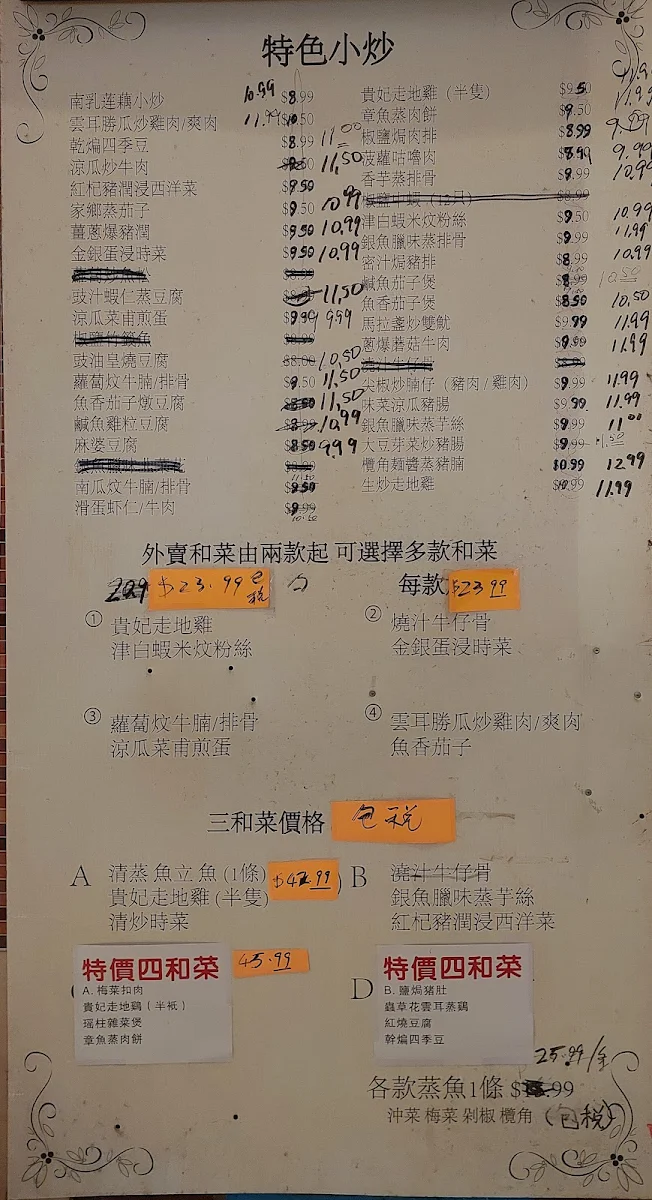 特色小炒
南乳莲藕小炒 10.99 $8.99
雲耳勝瓜炒雞肉/爽肉 11.99 $10.50
乾煸四季豆 $8.99 11.00
涼瓜炒牛肉 11.50
紅杞豬潤浸西洋菜 $9.50
家鄉蒸茄子 $9.50 10.99
薑蔥爆豬潤 $9.50 10.99
金銀蛋浸時菜 $9.50 10.99
豉汁蝦仁蒸豆腐 11.50
涼瓜菜甫煎蛋 $9.99 9.99
豉油皇燒豆腐 $8.00 10.50
蘿蔔炆牛腩/排骨 $9.50 11.50
魚香茄子燉豆腐 $8.50 11.50
鹹魚雞粒豆腐 10.99
麻婆豆腐 $8.50 9.99
南瓜炆牛腩/排骨 $9.50
滑蛋虾仁/牛肉 $9.99 10.50
貴妃走地雞 (半隻) $9.50 11.99
章魚蒸肉餅 $9.50 11.99
椒鹽焗肉排 $8.99 9.99
菠蘿咕嚕肉 $8.99 9.99
香芋蒸排骨 $9.99 10.99
椒鹽中蝦 (12只) $8.99
津白蝦米炆粉絲 $9.50 10.99
銀魚臘味蒸排骨 $9.99 11.99
密汁焗豬排 $8.99 10.99
鹹魚茄子煲 $8.99 10.50
魚香茄子煲 $8.50 10.50
馬拉盞炒雙魷 $9.99 11.99
蔥爆蘑菇牛肉 $9.99 11.99
燒汁牛仔骨
尖椒炒腩仔 (豬肉/雞肉) $9.99 11.99
味菜涼瓜豬腸 $9.99 11.99
銀魚臘味蒸芋絲 $9.99 11.00
大豆芽菜炒豬腸 $9.99 11.50
欖角麵醬蒸豬腩 $10.99 12.99
生炒走地雞 $10.99 11.99
外賣和菜由兩款起 可選擇多款和菜
$23.99 包税
每款 $23.99
① 貴妃走地雞
津白蝦米炆粉絲
② 燒汁牛仔骨
金銀蛋浸時菜
③ 蘿蔔炆牛腩/排骨
涼瓜菜甫煎蛋
④ 雲耳勝瓜炒雞肉/爽肉
魚香茄子
三和菜價格 包税
A 清蒸魚立魚 (1條)
貴妃走地雞 (半隻)
清炒時菜
B 澆汁牛仔骨
銀魚臘味蒸芋絲
紅杞豬潤浸西洋菜
特價四和菜 45.99
A. 梅菜扣肉
貴妃走地鷄 (半祇)
瑶柱雜菜煲
章魚蒸肉餅
D 特價四和菜
B. 鹽焗猪肚
蟲草花雲耳蒸鷄
紅燒豆腐
幹煸四季豆
25.99/条
各款蒸魚1條 $ .99
沖菜 梅菜 剁椒 欖角 (包税)